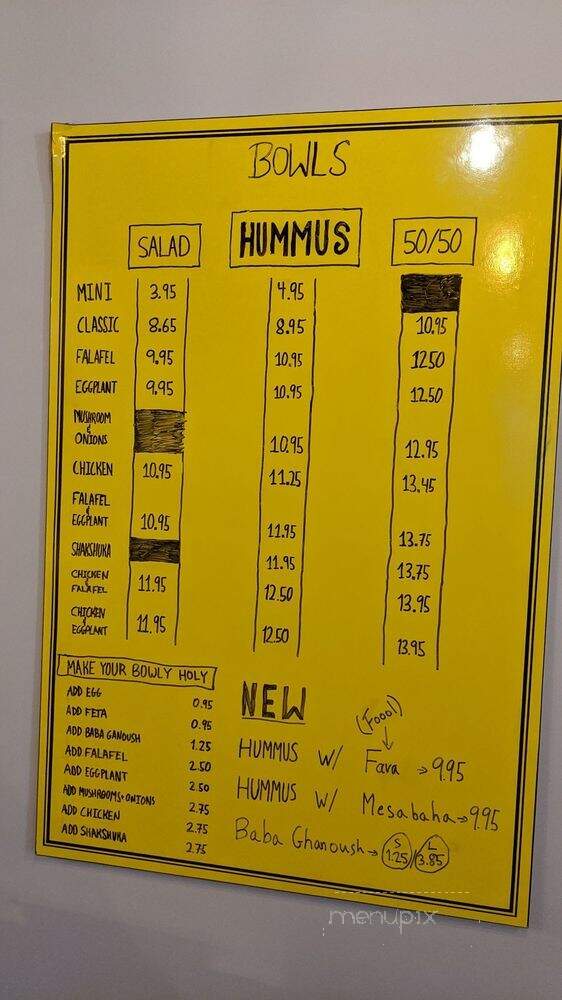 BOWLS
SALAD HUMMUS 50/50
MINI 3.95 4.95
CLASSIC 8.65 8.95 10.95
FALAFEL 9.95 10.95 12.50
EGGPLANT 9.95 10.95 12.50
MUSHROOM
&
ONIONS 10.95 12.95
CHICKEN 10.95 11.25 13.45
FALAFEL
&
EGGPLANT 10.95 11.95 13.75
SHAKSHUKA 11.95 13.75
CHICKEN
&
FALAFEL 11.95 12.50 13.95
CHICKEN
&
EGGPLANT 11.95 12.50 13.95
MAKE YOUR BOWLY HOLY
ADD EGG 0.95
ADD FETA 0.95
ADD BABA GANOUSH 1.25
ADD FALAFEL 2.50
ADD EGGPLANT 2.50
ADD MUSHROOMS+ONIONS 2.75
ADD CHICKEN 2.75
ADD SHAKSHUKA 2.75
NEW
(Fool)
HUMMUS W/ Fava → 9.95
HUMMUS W/ Mesabaha → 9.95
Baba Ghanoush → S 1.25 / L 3.85
menupix